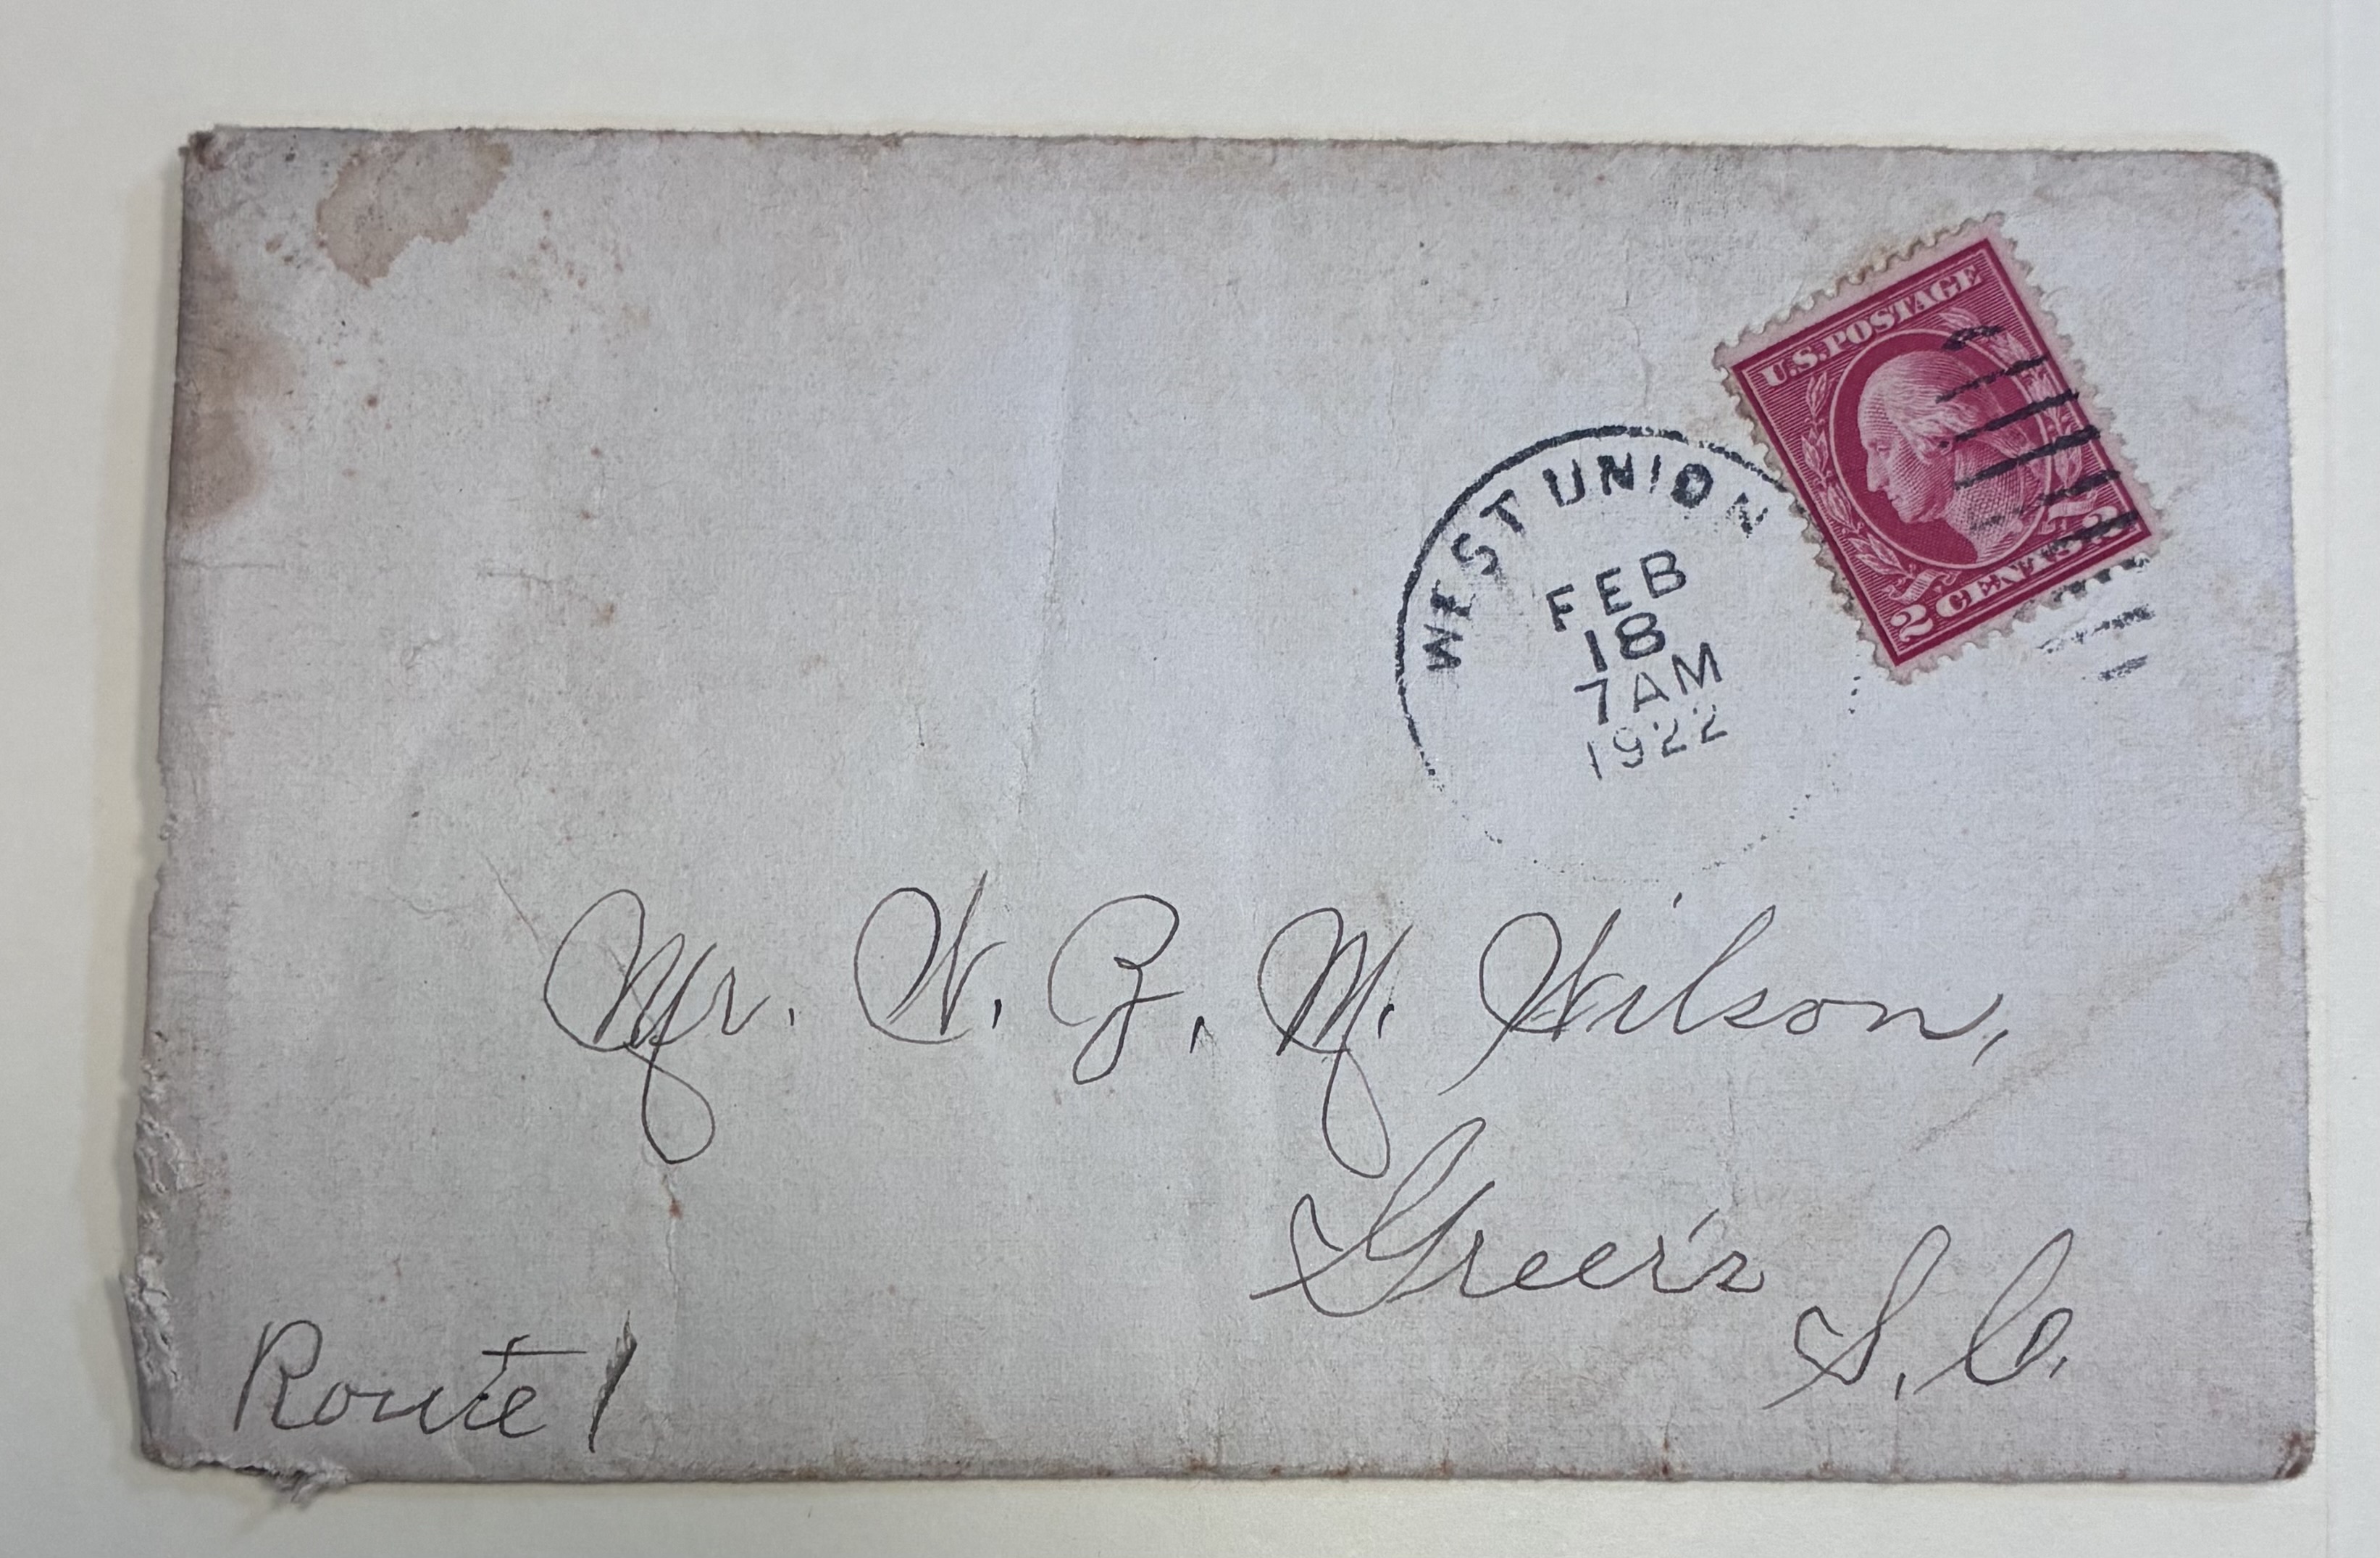 U.S. POSTAGE
2 CENTS 2
WEST UNION
FEB
18
7 AM
1922
Mr. W. B. M. Wilson,
Greer's
S. C.
Route 1